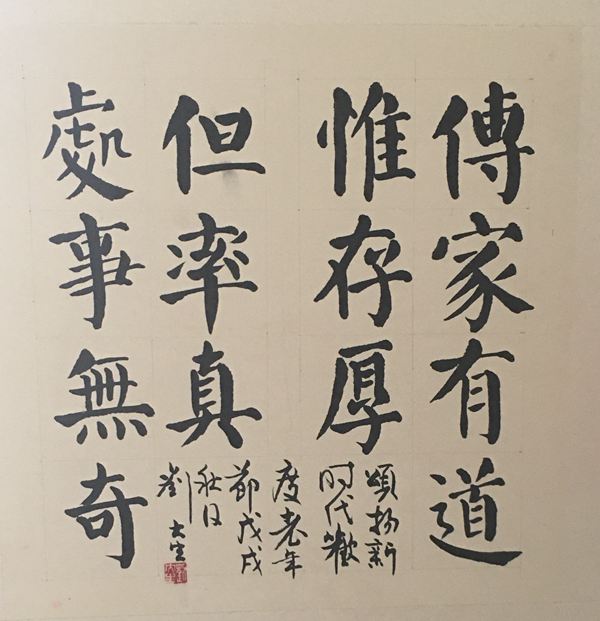 傳家有道
惟存厚
處事無奇
但率真
頌揚新
时代歡
度老年
節戊戌
秋日
劉大生